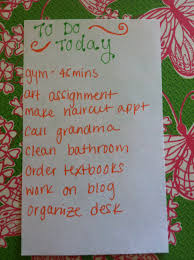 To Do
Today
gym - 45mins
art assignment
make haircut appt
call grandma
clean bathroom
order textbooks
work on blog
organize desk